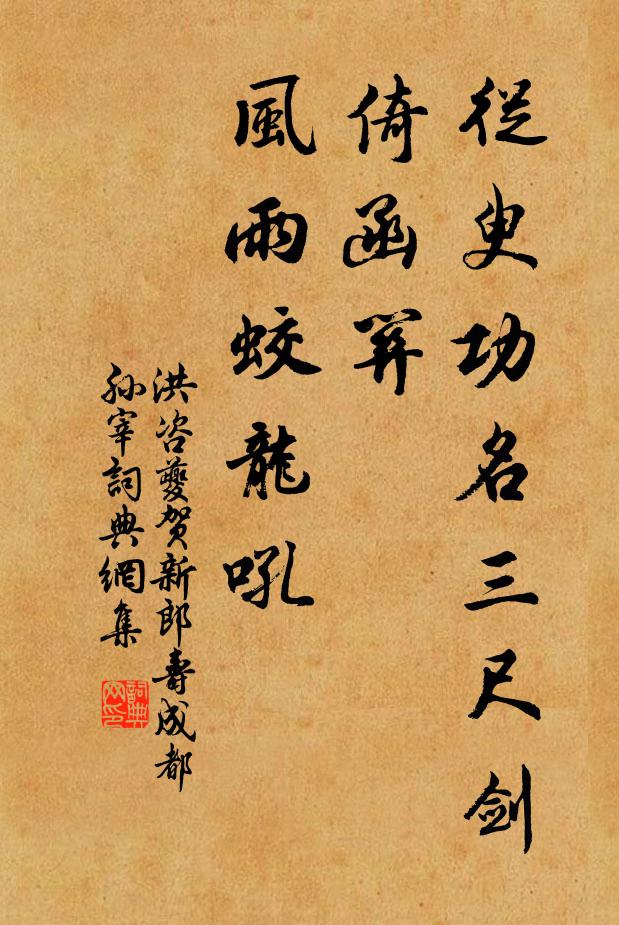 從臾功名三尺剑
倚函關
風雨蛟龍吼
洪咨夔贺新郎壽成都
孫宰詞典網集
詞典網印